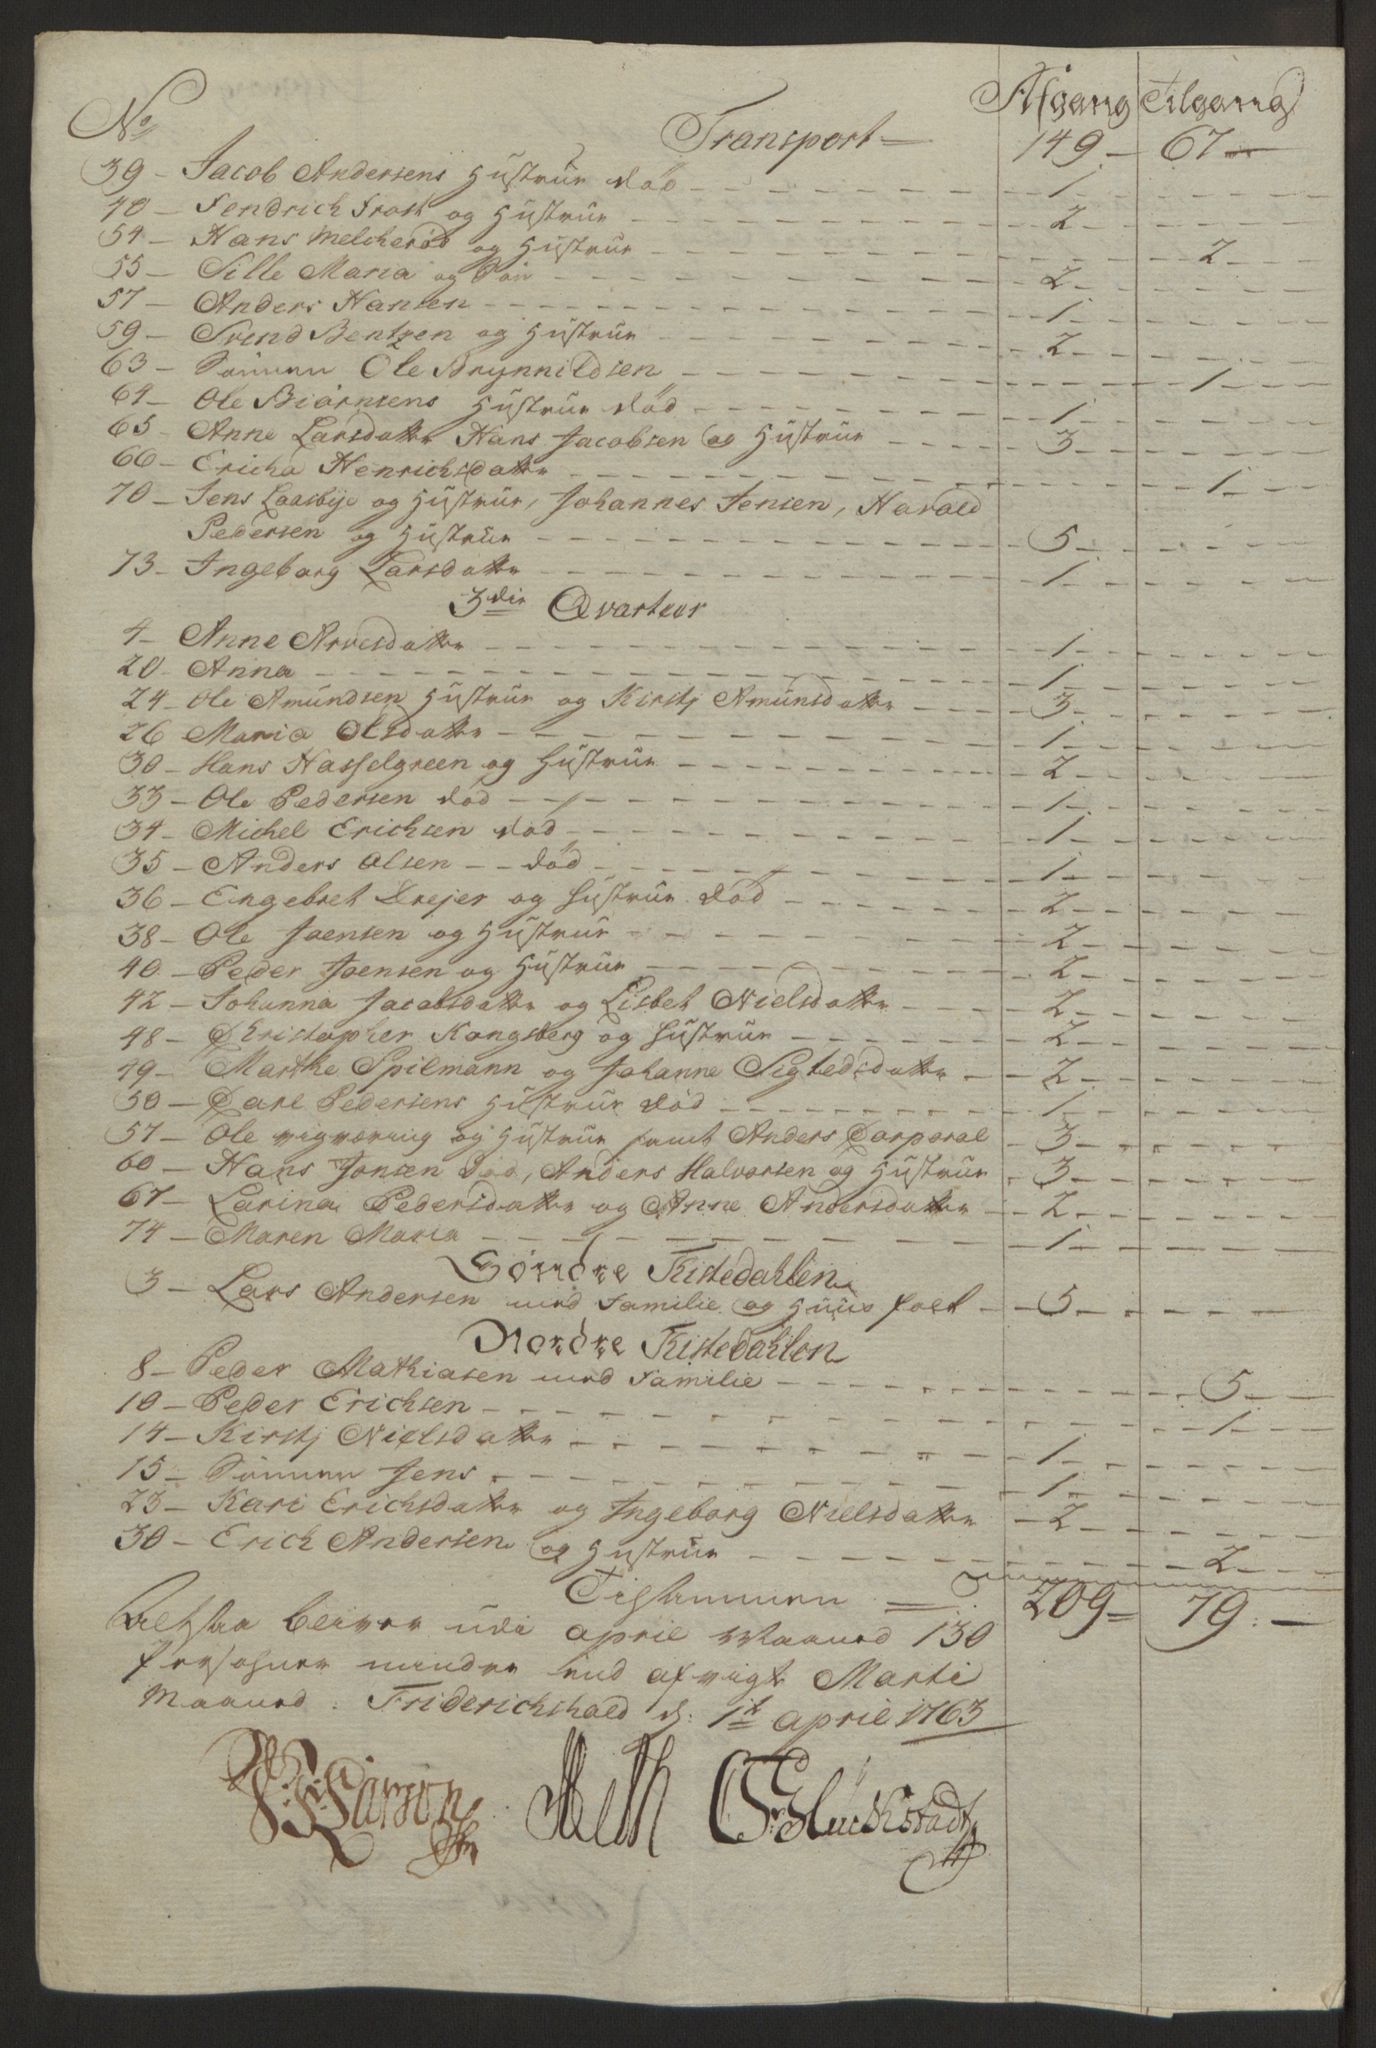 No Afgang Tilgang
Transport — 149 — 67 —
39 — Jacob Andersens Hustrue död — 1
48 — Hendrich Frost og Hustrue — 2
54 — Hans Melcheröd og Hustrue — 2
55 — Sille Maria og Sön — 2
57 — Anders Hansen — 1
59 — Svend Bentzen og Hustrue — 2
63 — Sönnen Ole Brynnildsen — 1
64 — Ole Biörnsens Hustrue död — 1
65 — Anne Larsdatter Hans Jacobsen og Hustrue — 3
66 — Ericha Henrichsdatter — 1
70 — Jens Laasbye og Hustrue, Johannes Jensen, Harald
Pedersen og Hustrue — 5
73 — Ingeborg Larsdatter — 1
3die Qvarteer
4 — Anne Arvesdatter — 1
20 — Anna — 1
24 — Ole Amundsen Hustrue og Kirstj Amunsdatter — 3
26 Maria Olsdatter — 1
30 — Hans Hasselgreen og Hustrue — 2
33 — Ole Pedersen död — 1
34 — Michel Erichsen död — 1
35 — Anders Olsen — död — 1
36 — Engebret Drejer og Hustrue död — 2
38 — Ole Joensen og Hustrue — 2
40 — Peder Joensen og Hustrue — 2
42 — Johanna Jacobsdatter og Lisbet Nielsdatter — 2
48 — Christopher Kongsberg og Hustrue — 2
49 — Marthe Spilmann og Johanne Sigtedsdatter — 2
50 — Carl Pedersens Hustrue död — 1
57 — Ole vigværing og Hustrue samt Anders Corporal — 3
60 — Hans Jonsen död, Anders Halvorsen og Hustrue — 3
67 — Larina Pedersdatter og Anne Andersdatter — 2
74 — Maren Maria — 1
Söndre Tistedahlen
3 — Lars Andersen med Familie og Huus folk — 5
Nordre Tistedahlen
8 — Peder Mathiasen med Familie — 5
10 — Peder Erichsen — 1
14 — Kirstj Nielsdatter — 1
15 — Sönnen Jens — 1
23 — Kari Erichsdatter og Ingeborg Nielsdatter — 2
30 — Erich Andersen og Hustrue — 2
Tilsammen — 209 — 79 —
Altsaa bliver udi april Maaned 130
Personer mindre end afvigte Marti
Maaned. Friderichshald d: 1st april 1763
Larson Meth Glückstadt